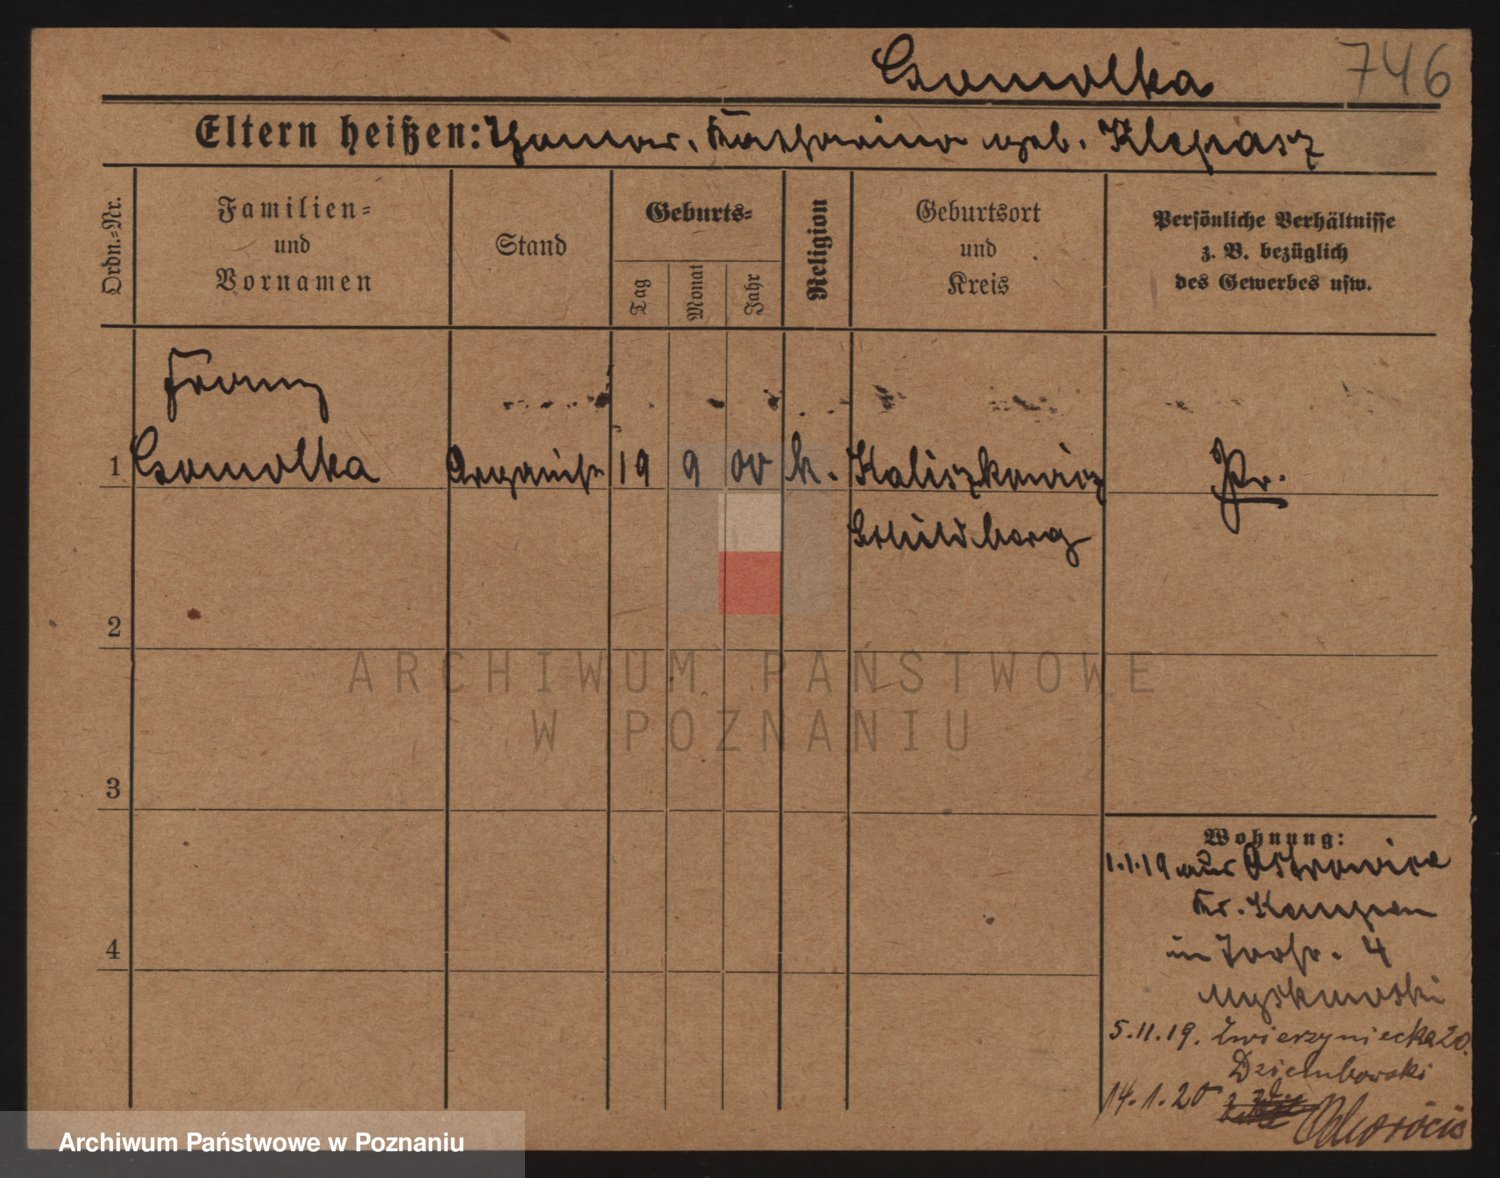 Gomolka 746
Eltern heißen: Thomas, Katharina geb. Klepasz
Ordn.-Nr.
Familien-
und
Vornamen
Stand
Geburts-
Tag
Monat
Jahr
Religion
Geburtsort
und
Kreis
Persönliche Verhältnisse
z. B. bezüglich
des Gewerbes usw.
Franz
1 Gomolka Organist 19 9 00 k. Kaliszkowice Pr.
Schildberg
2
ARCHIWUM PAŃSTWOWE
W POZNANIU
3
Wohnung:
1.1.19 aus Ostrowiec
Kr. Kempen
4
in 4
5.11.19. Zwierzyniecka 20.
Dziembowski
14.1.20
Archiwum Państwowe w Poznaniu